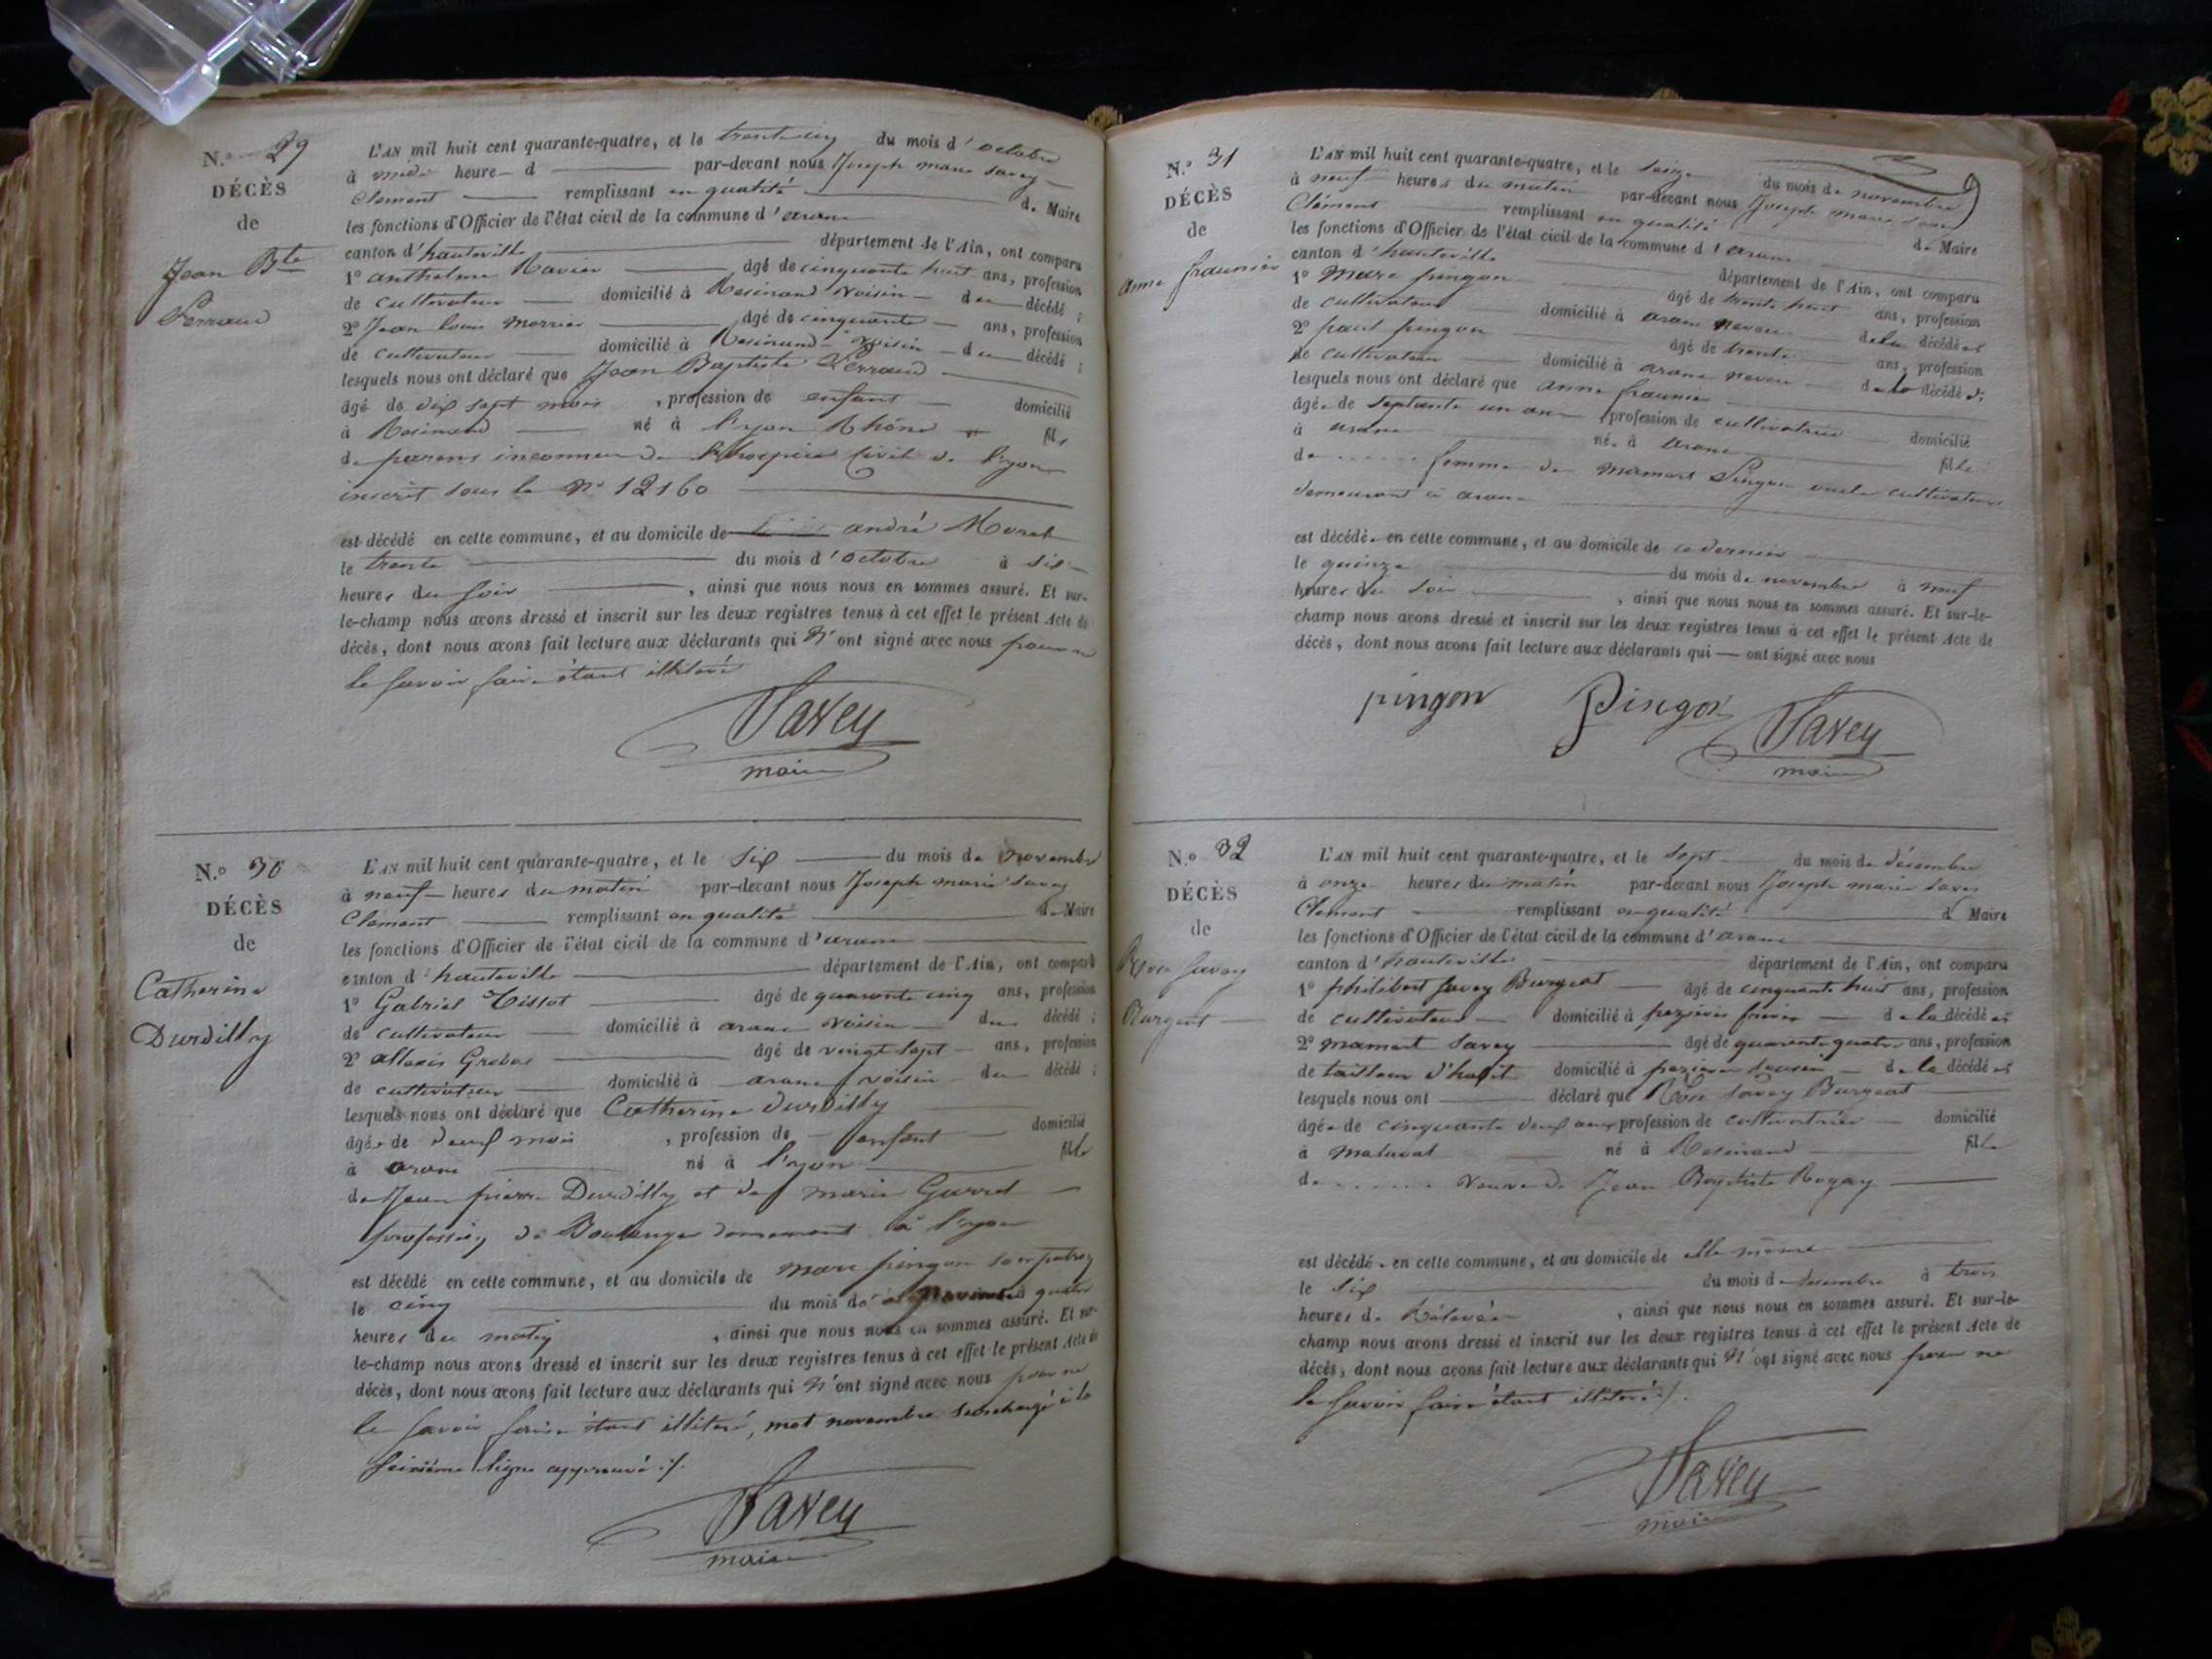 N.º 29
DÉCÈS
de
Jean Bte
Perraud
L'AN mil huit cent quarante-quatre, et le du mois d'octobre
à midi heure d par-devant nous Joseph marie Savey
Clement remplissant en qualité de Maire
les fonctions d'Officier de l'état civil de la commune d'aranc
canton d'hauteville département de l'Ain, ont comparu
1º anthelme Ravier âgé de cinquante huit ans, profession
de cultivateur domicilié à Resinand voisin du décédé ;
2º Jean louis âgé de cinquante ans, profession
de cultivateur domicilié à Resinand voisin du décédé ;
lesquels nous ont déclaré que Jean Baptiste Perraud
âgé de dix sept mois , profession de enfant domicilié
à Resinand né à lyon Rhône fils
de parens inconnu de l'hospice Civil de lyon
inscrit sous le Nº 12160
est décédé en cette commune, et au domicile de andré Morel
le trente du mois d'octobre à six
heures du soir , ainsi que nous nous en sommes assuré. Et sur-
le-champ nous avons dressé et inscrit sur les deux registres tenus à cet effet le présent Acte de
décès, dont nous avons fait lecture aux déclarants qui N'ont signé avec nous pour ne
le savoir faire étant illitéré
Savey
maire
N.º 30
DÉCÈS
de
Catherine
Durdilly
L'AN mil huit cent quarante-quatre, et le six du mois de novembre
à neuf heures du matin par-devant nous Joseph marie Savey
Clement remplissant en qualité de Maire
les fonctions d'Officier de l'état civil de la commune d'aranc
canton d'hauteville département de l'Ain, ont comparu
1º Gabriel Tissot âgé de quarante cinq ans, profession
de cultivateur domicilié à aranc voisin du décédé ;
2º allexis Grebas âgé de vingt sept ans, profession
de cultivateur domicilié à aranc voisin du décédé ;
lesquels nous ont déclaré que Catherine Durdilly
âgée de mois , profession de enfant domicilié
à aranc né à lyon fille
de Jean pierre Durdilly et de marie
profession de Boulanger demeurant à lyon
est décédé en cette commune, et au domicile de marc pingon
le cinq du mois de novembre à quatre
heures du matin , ainsi que nous nous en sommes assuré. Et sur-
le-champ nous avons dressé et inscrit sur les deux registres tenus à cet effet le présent Acte de
décès, dont nous avons fait lecture aux déclarants qui N'ont signé avec nous pour ne
le savoir faire étant illitéré, mot novembre surchargé à la
seizième ligne approuvé ./.
Savey
maire
N.º 31
DÉCÈS
de
anne
L'AN mil huit cent quarante-quatre, et le seize du mois de novembre
à neuf heures du matin par-devant nous Joseph marie Savey
Clément remplissant en qualité de Maire
les fonctions d'Officier de l'état civil de la commune d'aranc
canton d'hauteville département de l'Ain, ont comparu
1º Marc pingon âgé de trente huit ans, profession
de cultivateur domicilié à aranc neveu de la décédée
2º paul pingon âgé de trente ans, profession
de cultivateur domicilié à aranc neveu de la décédée ;
lesquels nous ont déclaré que anne
âgée de septante un ans profession de cultivatrice domicilié
à aranc née à aranc fille
de femme de mamert Pingon oncle cultivateur
demeurant à aranc
est décédée en cette commune, et au domicile de ce dernier
le quinze du mois de novembre à neuf
heures du soir , ainsi que nous nous en sommes assuré. Et sur-le-
champ nous avons dressé et inscrit sur les deux registres tenus à cet effet le présent Acte de
décès, dont nous avons fait lecture aux déclarants qui ont signé avec nous
pingon Pingon Savey
maire
N.º 32
DÉCÈS
de
Rose Savey
Burgeat
L'AN mil huit cent quarante-quatre, et le sept du mois de décembre
à onze heures du matin par-devant nous Joseph marie Savey
Clement remplissant en qualité de Maire
les fonctions d'Officier de l'état civil de la commune d'aranc
canton d'hauteville département de l'Ain, ont comparu
1º philibert Savey Burgeat âgé de cinquante huit ans, profession
de cultivateur domicilié à de la décédée
2º mamert Savey âgé de quarante quatre ans, profession
de tailleur d'habit domicilié à de la décédée
lesquels nous ont déclaré que Rose Savey Burgeat
âgée de cinquante deux ans profession de cultivatrice domicilié
à malaval né à Resinand fille
de veuve de Jean Baptiste
est décédée en cette commune, et au domicile de elle même
le six du mois de decembre à trois
heures de , ainsi que nous nous en sommes assuré. Et sur-le-
champ nous avons dressé et inscrit sur les deux registres tenus à cet effet le présent Acte de
décès, dont nous avons fait lecture aux déclarants qui N'ont signé avec nous pour ne
le savoir faire étant illitéré ./.
Savey
maire